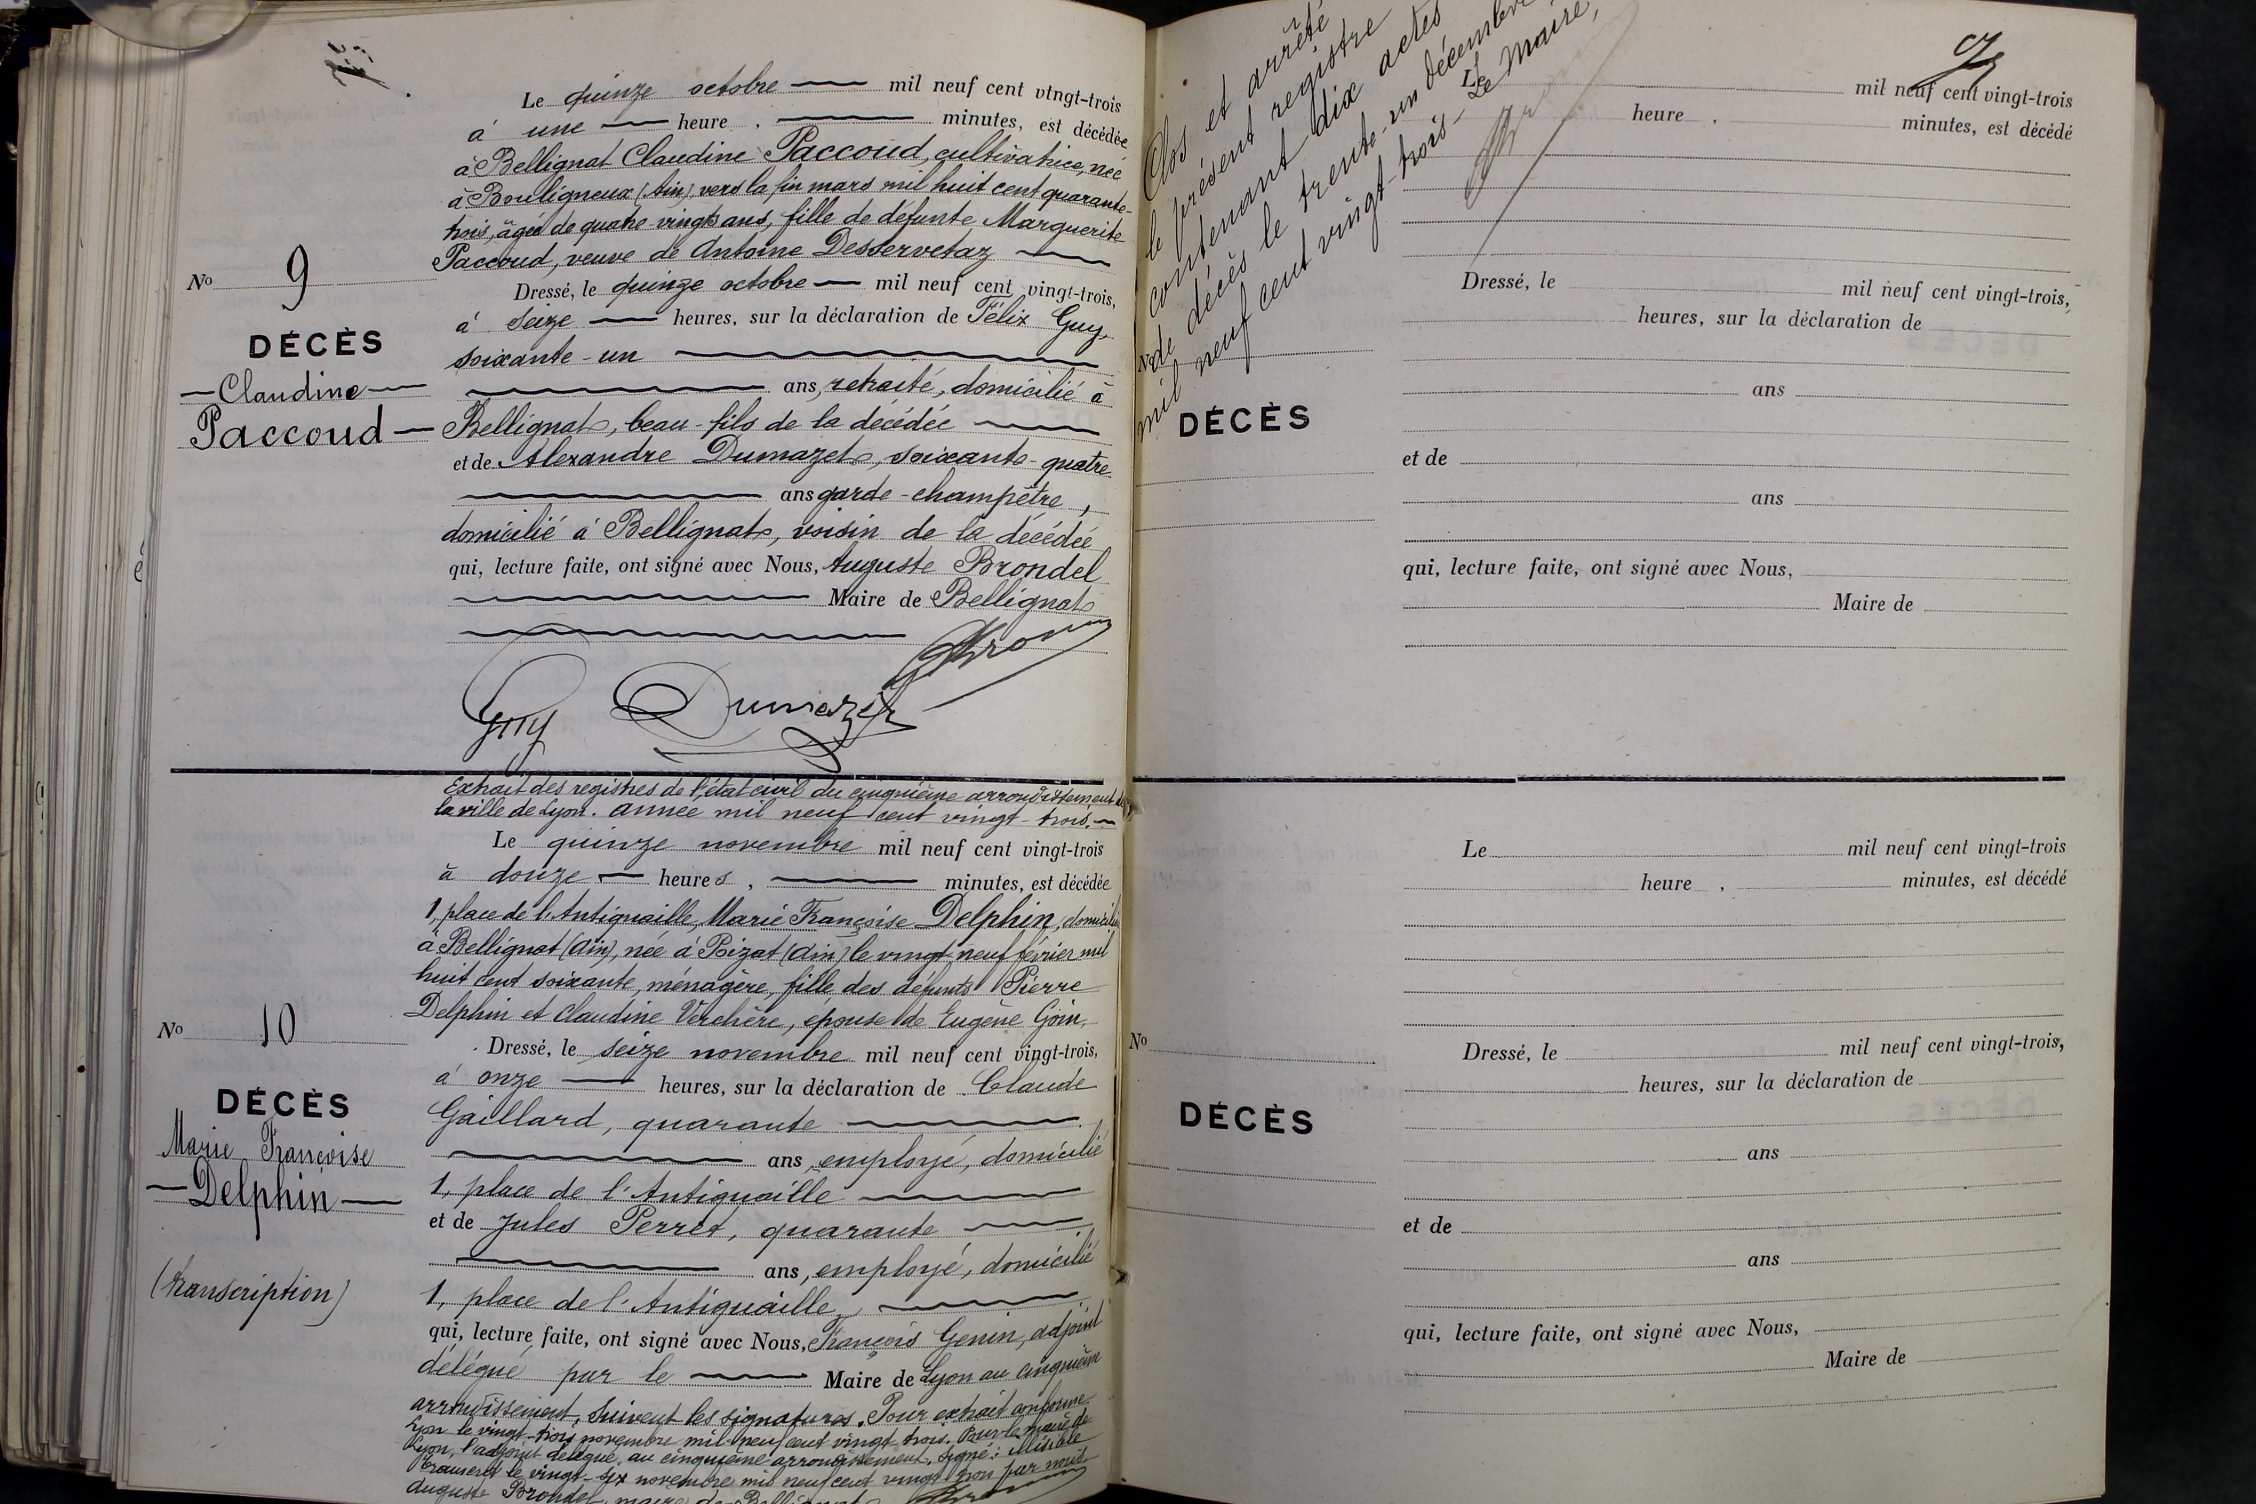 Le quinze octobre mil neuf cent vingt-trois
à une heure , minutes, est décédée
à Bellignat Claudine Paccoud, cultivatrice, née
à Bouligneux (Ain) vers la fin mars mil huit cent quarante-
trois, âgée de quatre-vingts ans, fille de défunte Marguerite
Paccoud, veuve de Antoine Desservetaz
No 9
DÉCÈS
Claudine
Paccoud
Dressé, le quinze octobre mil neuf cent vingt-trois,
à seize heures, sur la déclaration de Félix Guy,
soixante-un
ans, retraité, domicilié à
Bellignat, beau-fils de la décédée
et de Alexandre Dumazet, soixante-quatre
ans garde-champêtre,
domicilié à Bellignat, voisin de la décédée
qui, lecture faite, ont signé avec Nous, Auguste Brondel
Maire de Bellignat
Guy Dumazet
Extrait des registres de l'état civil du cinquième arrondissement de
la ville de Lyon. année mil neuf cent vingt-trois.
Le quinze novembre mil neuf cent vingt-trois
à douze heures , minutes, est décédée
1, place de l'Antiquaille, Marie Françoise Delphin, domiciliée
à Bellignat (Ain), née à Poizat (Ain) le vingt-neuf février mil
huit cent soixante, ménagère, fille des défunts Pierre
Delphin et Claudine Verchère, épouse de Eugène Goin.
No 10
DÉCÈS
Marie Françoise
Delphin
(transcription)
Dressé, le seize novembre mil neuf cent vingt-trois,
à onze heures, sur la déclaration de Claude
Gaillard, quarante
ans, employé, domicilié
1, place de l'Antiquaille
et de Jules Perret, quarante
ans, employé, domicilié
1, place de l'Antiquaille,
qui, lecture faite, ont signé avec Nous, François Genin, adjoint
délégué par le Maire de Lyon au cinquième
arrondissement. Suivent les signatures. Pour extrait conforme.
Lyon le vingt-trois novembre mil neuf cent vingt-trois. Pour le maire de
Lyon, l'adjoint délégué au cinquième arrondissement, signé: illisible
Transcrit le vingt-six novembre mil neuf cent vingt-trois par nous
Auguste Brondel maire de Bellignat
Clos et arrêté
le présent registre
contenant dix actes
de décès le trente-un décembre
mil neuf cent vingt-trois-
Le Maire,
Le mil neuf cent vingt-trois
heure , minutes, est décédé
No
DÉCÈS
Dressé, le mil neuf cent vingt-trois,
heures, sur la déclaration de
ans
et de
ans
qui, lecture faite, ont signé avec Nous,
Maire de
Le mil neuf cent vingt-trois
heure , minutes, est décédé
No
DÉCÈS
Dressé, le mil neuf cent vingt-trois,
heures, sur la déclaration de
ans
et de
ans
qui, lecture faite, ont signé avec Nous,
Maire de